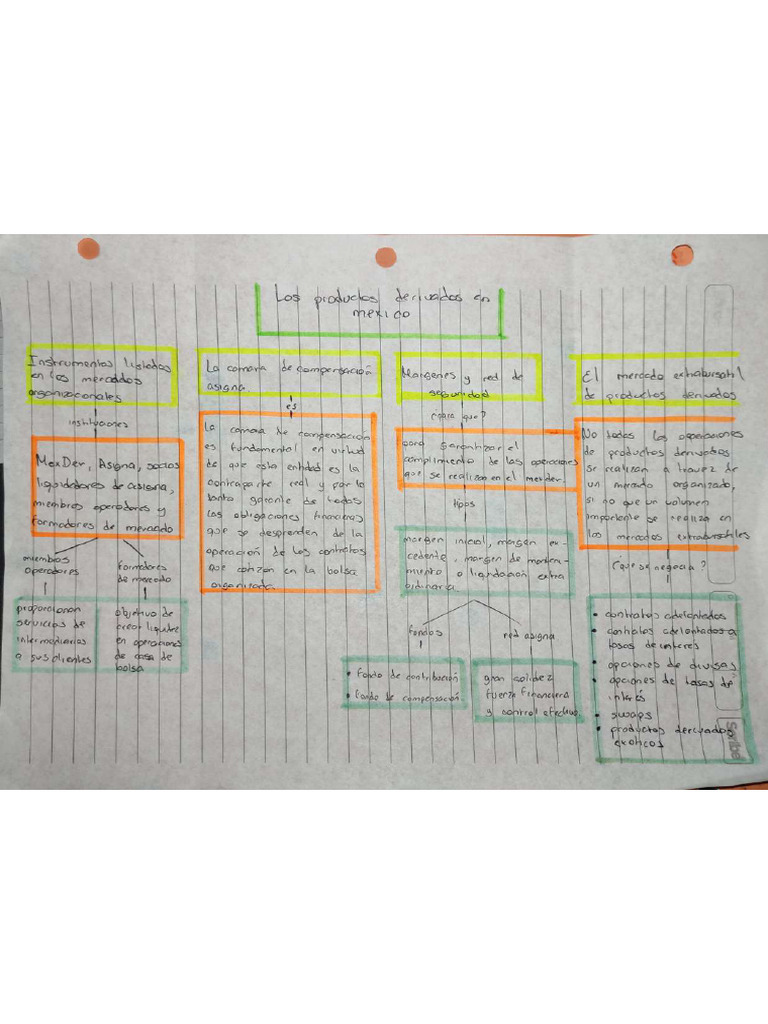 Los productos derivados en
mexico
Instrumentos listados
en los mercados
organizacionales
instituciones
MexDer, Asigna, socios
liquidadores de asigna,
miembros operadores y
formadores de mercado
miembros
operadores
formadores
de mercado
proporcionan
servicios de
intermediarios
a sus clientes
objetivo de
crear liquidez
en operaciones
de casa de
bolsa
La camara de compensación
asigna
es
La camara de compensación
es fundamental en virtud
de que esta entidad es la
contraparte real y por lo
tanto garante de todos
las obligaciones financieras
que se desprenden de la
operación de los contratos
que cotizan en la bolsa
organizada.
Margenes y red de
seguridad
¿para que?
para garantizar el
complimiento de las operaciones
que se realizan en el mexder.
tipos
margen inicial, margen ex-
cedente, margen de manteni-
miento o liquidación extra
ordinaria.
fondos
red asigna
• fondo de contribución
• fondo de compensación.
gran solidez
fuerza financiera
y control efectivo.
El mercado extrabursatil
de productos derivados
No todas las operaciones
de productos derivados
se realizan a travez de
un mercado organizado,
si no que un volumen
importente se realiza en
los mercados extrabursatiles
¿que se negocia?
• contratos adelantados
• contratos adelantados a
tasas de interes
• opciones de divisas
• opciones de tasas de
interés
• swaps
• productos derivados
exoticos
Scribe